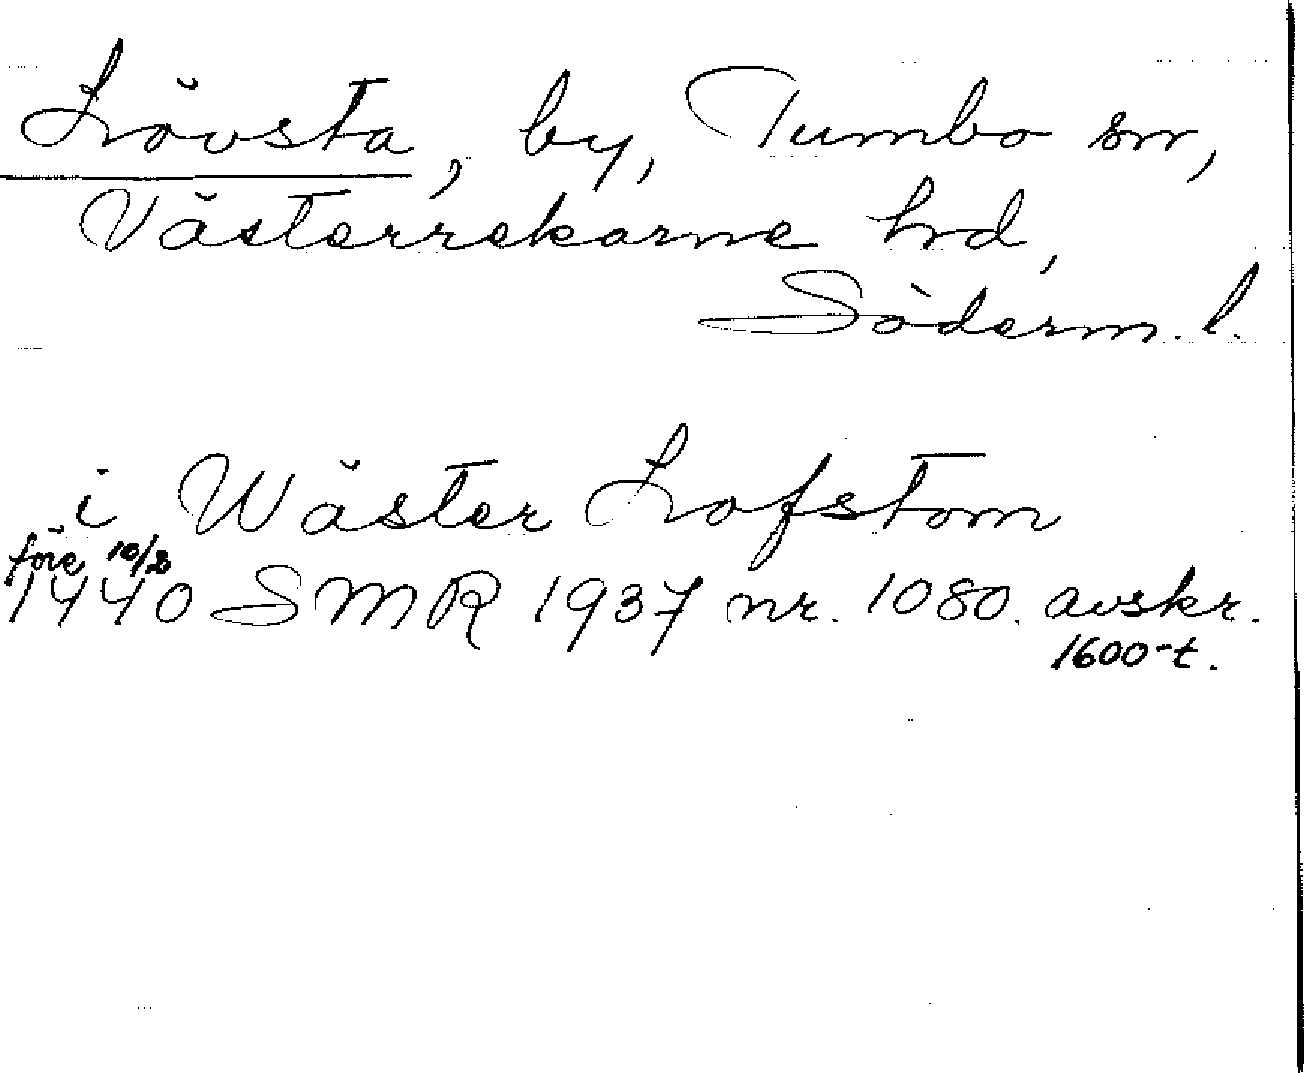 Lövsta, by, Tumbo sn,
Västerrekarne hrd,
Söderm. l.
i Wäster Lofstom
före 10/2
1440 SMR 1937 nr. 1080. avskr.
1600-t.